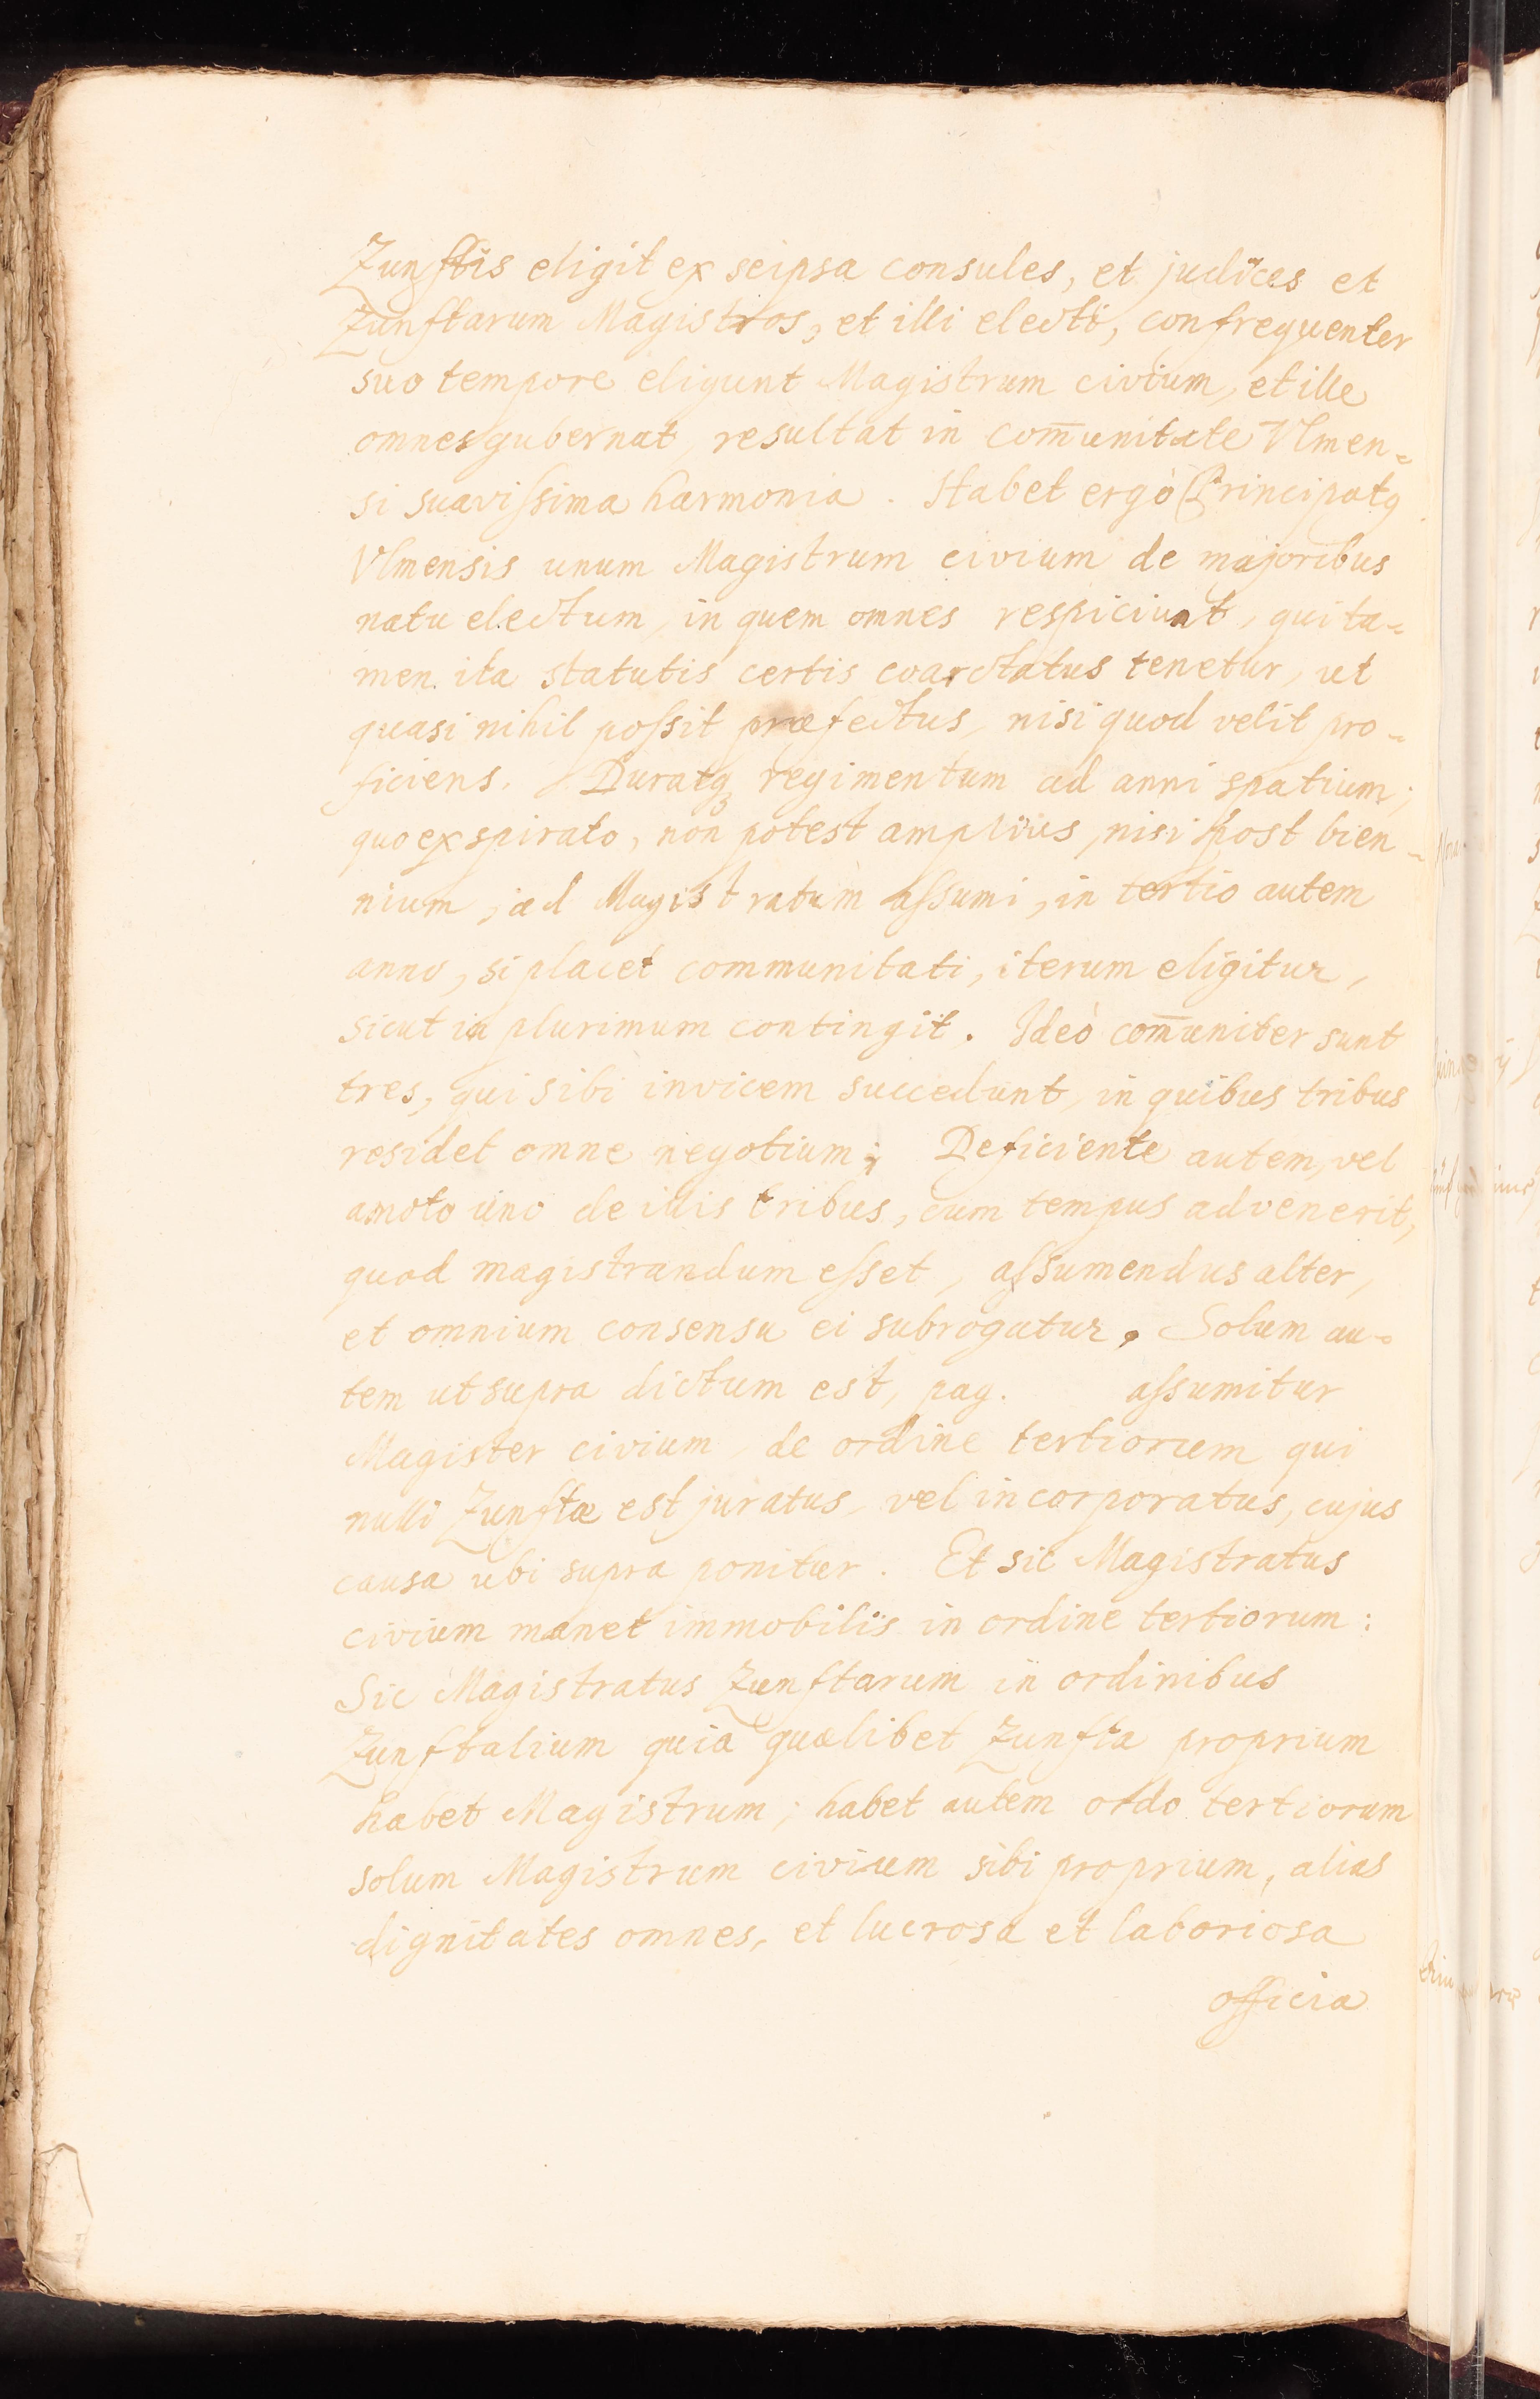 Zunftis eligit ex seipsa consules, et judices et
Zunftarum Magistros, et illi electi, confrequenter
suo tempore eligunt Magistrum civium, et ille
omnes gubernat, resultat in com̄unitate Vlmen-
si suavissima harmonia. Habet ergò Principatq
Vlmensis unum Magistrum civium de majoribus
natu electum, in quem omnes respiciunt, qui ta-
men ita statutis certis coarctatus tenetur, ut
quasi nihil possit præfectus, nisi quod velit pro-
ficiens. Duratq regimentum ad anni spatium;
quo exspirato, non potest amplius, nisi post bien-
nium, ad Magistratum assumi, in tertio autem
anno, si placet communitati, iterum eligitur,
sicut in plurimum contingit. Ideò com̄uniter sunt
tres, qui sibi invicem succedunt, in quibus tribus
residet omne negotium; Deficiente autem, vel
amoto uno de illis tribus, cum tempus advenerit,
quod magistrandum esset, assumendus alter,
et omnium consensu ei subrogatur. Solum au-
tem ut supra dictum est, pag. assumitur
Magister civium, de ordine tertiorum qui
nulli Zunftæ est juratus, vel incorporatus, cujus
causa ubi supra ponitur. Et sic Magistratus
civium manet immobilis in ordine tertiorum:
Sic Magistratus Zunftarum in ordinibus
Zunftalium quia quælibet Zunfta proprium
habet Magistrum; habet autem ordo tertiorum
solum Magistrum civium sibi proprium, alias
dignitates omnes, et lucrosa et laboriosa
officia